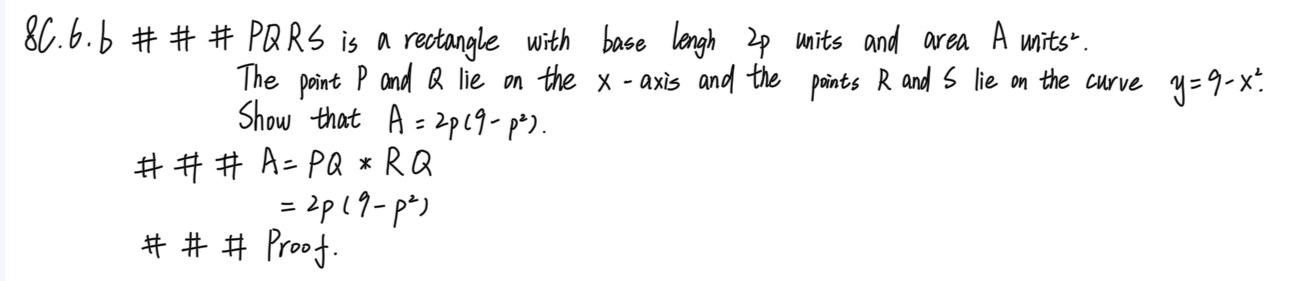 8C.6.b # # # PQRS is a rectangle with base lengh 2p units and area A units².
The point P and Q lie on the x-axis and the points R and S lie on the curve y=9-x².
Show that A = 2p(9-p²).
# # # A= PQ * RQ
= 2p(9-p²)
# # # Proof.